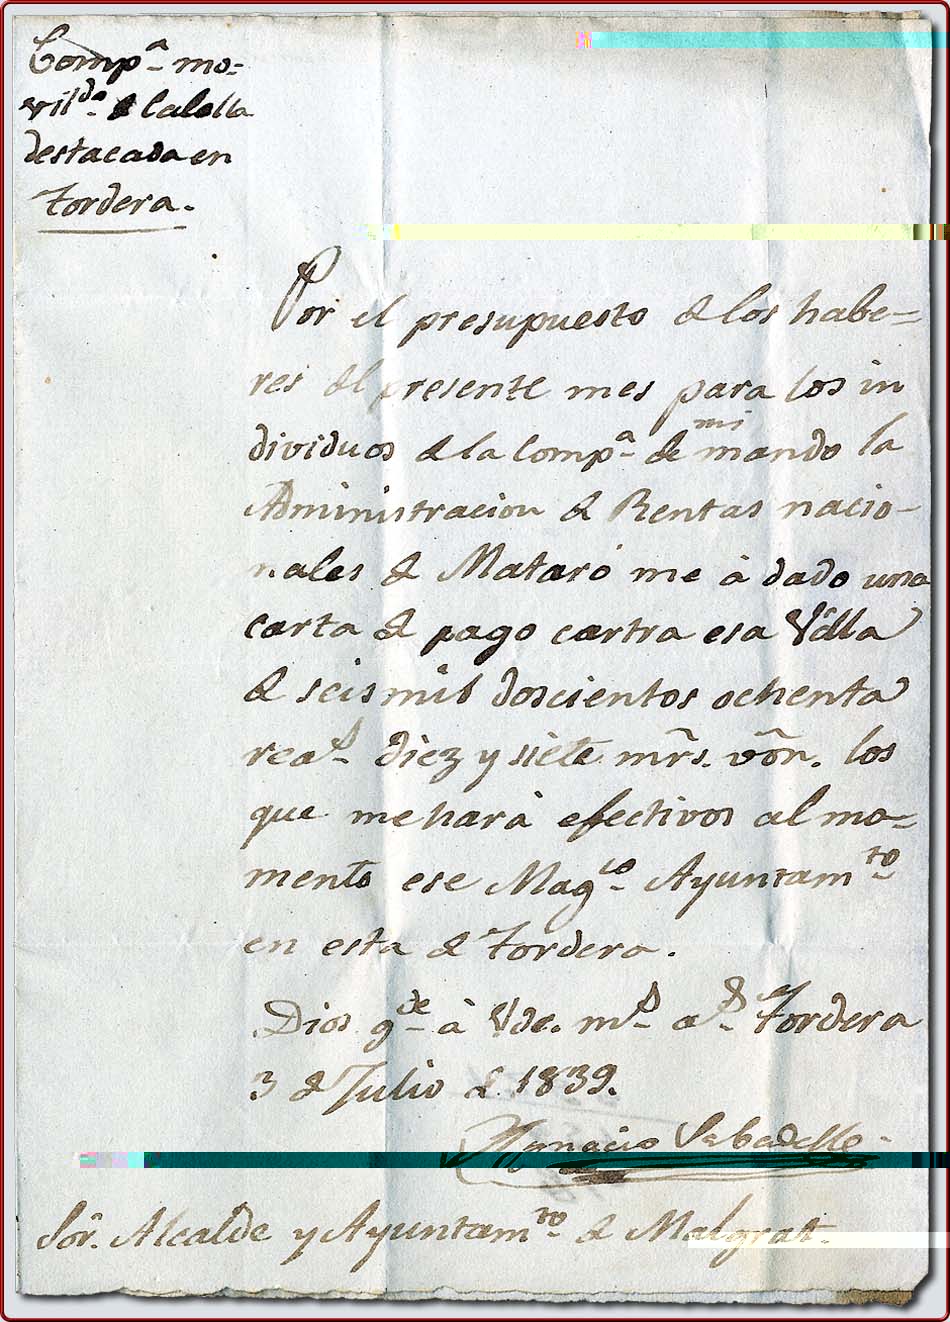 Comp.ª mo-
vil.da de Calella
destacada en
Tordera.
Por el presupuesto de los habe-
res del presente mes para los in
dividuos de la Comp.ª de mi mando la
Administracion de Rentas nacio-
nales de Mataró me à dado una
carta de pago contra esa Villa
de seis mil doscientos ochenta
rea.s diez y siete mrs. von. los
que me hará efectivos al mo-
mento ese Mag.co Ayuntam.to
en esta de Tordera.
Dios g.de à Vds. m.s a.s Tordera
3 de Julio de 1839.
Ygnacio Sabadello
Sor. Alcalde y Ayuntam.to de Malgrat.